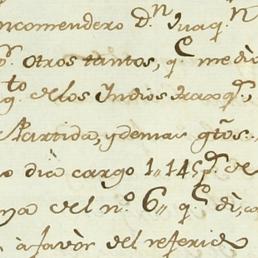 ncomendero D.n Juaq.n
p.r otros tantos, q.e mediò
g.to de los Indios traxq.s,
Partida, y demas gtos..
o dia cargo 1,,145p.s de
na del n.o 6,, q.e di,
à favòr del referid